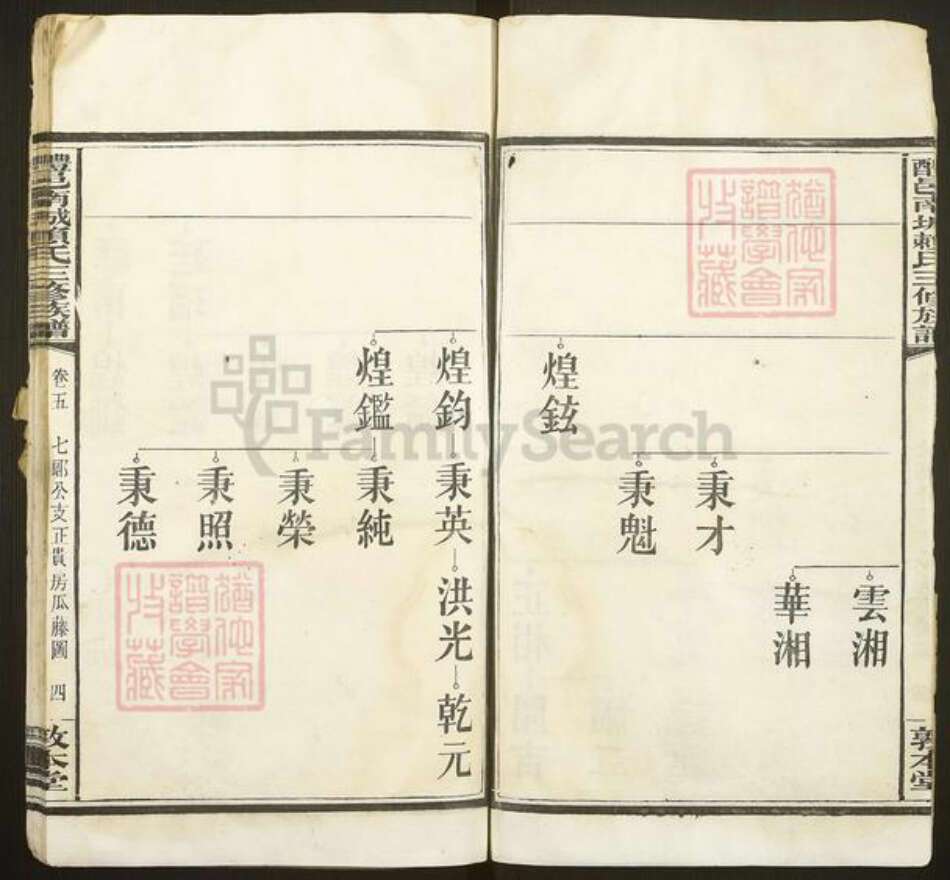 醴邑南城賴氏三修族譜
敦本堂
雲湘
華湘
秉才
秉魁
煌鉉
煌鈞 秉英 洪光 乾元
煌鑑 秉純
秉榮
秉照
秉德
醴邑南城賴氏三修族譜
卷五 七郎公支正貴房瓜藤圖 四
敦本堂
譜學會
收藏
譜學會
收藏
FamilySearch